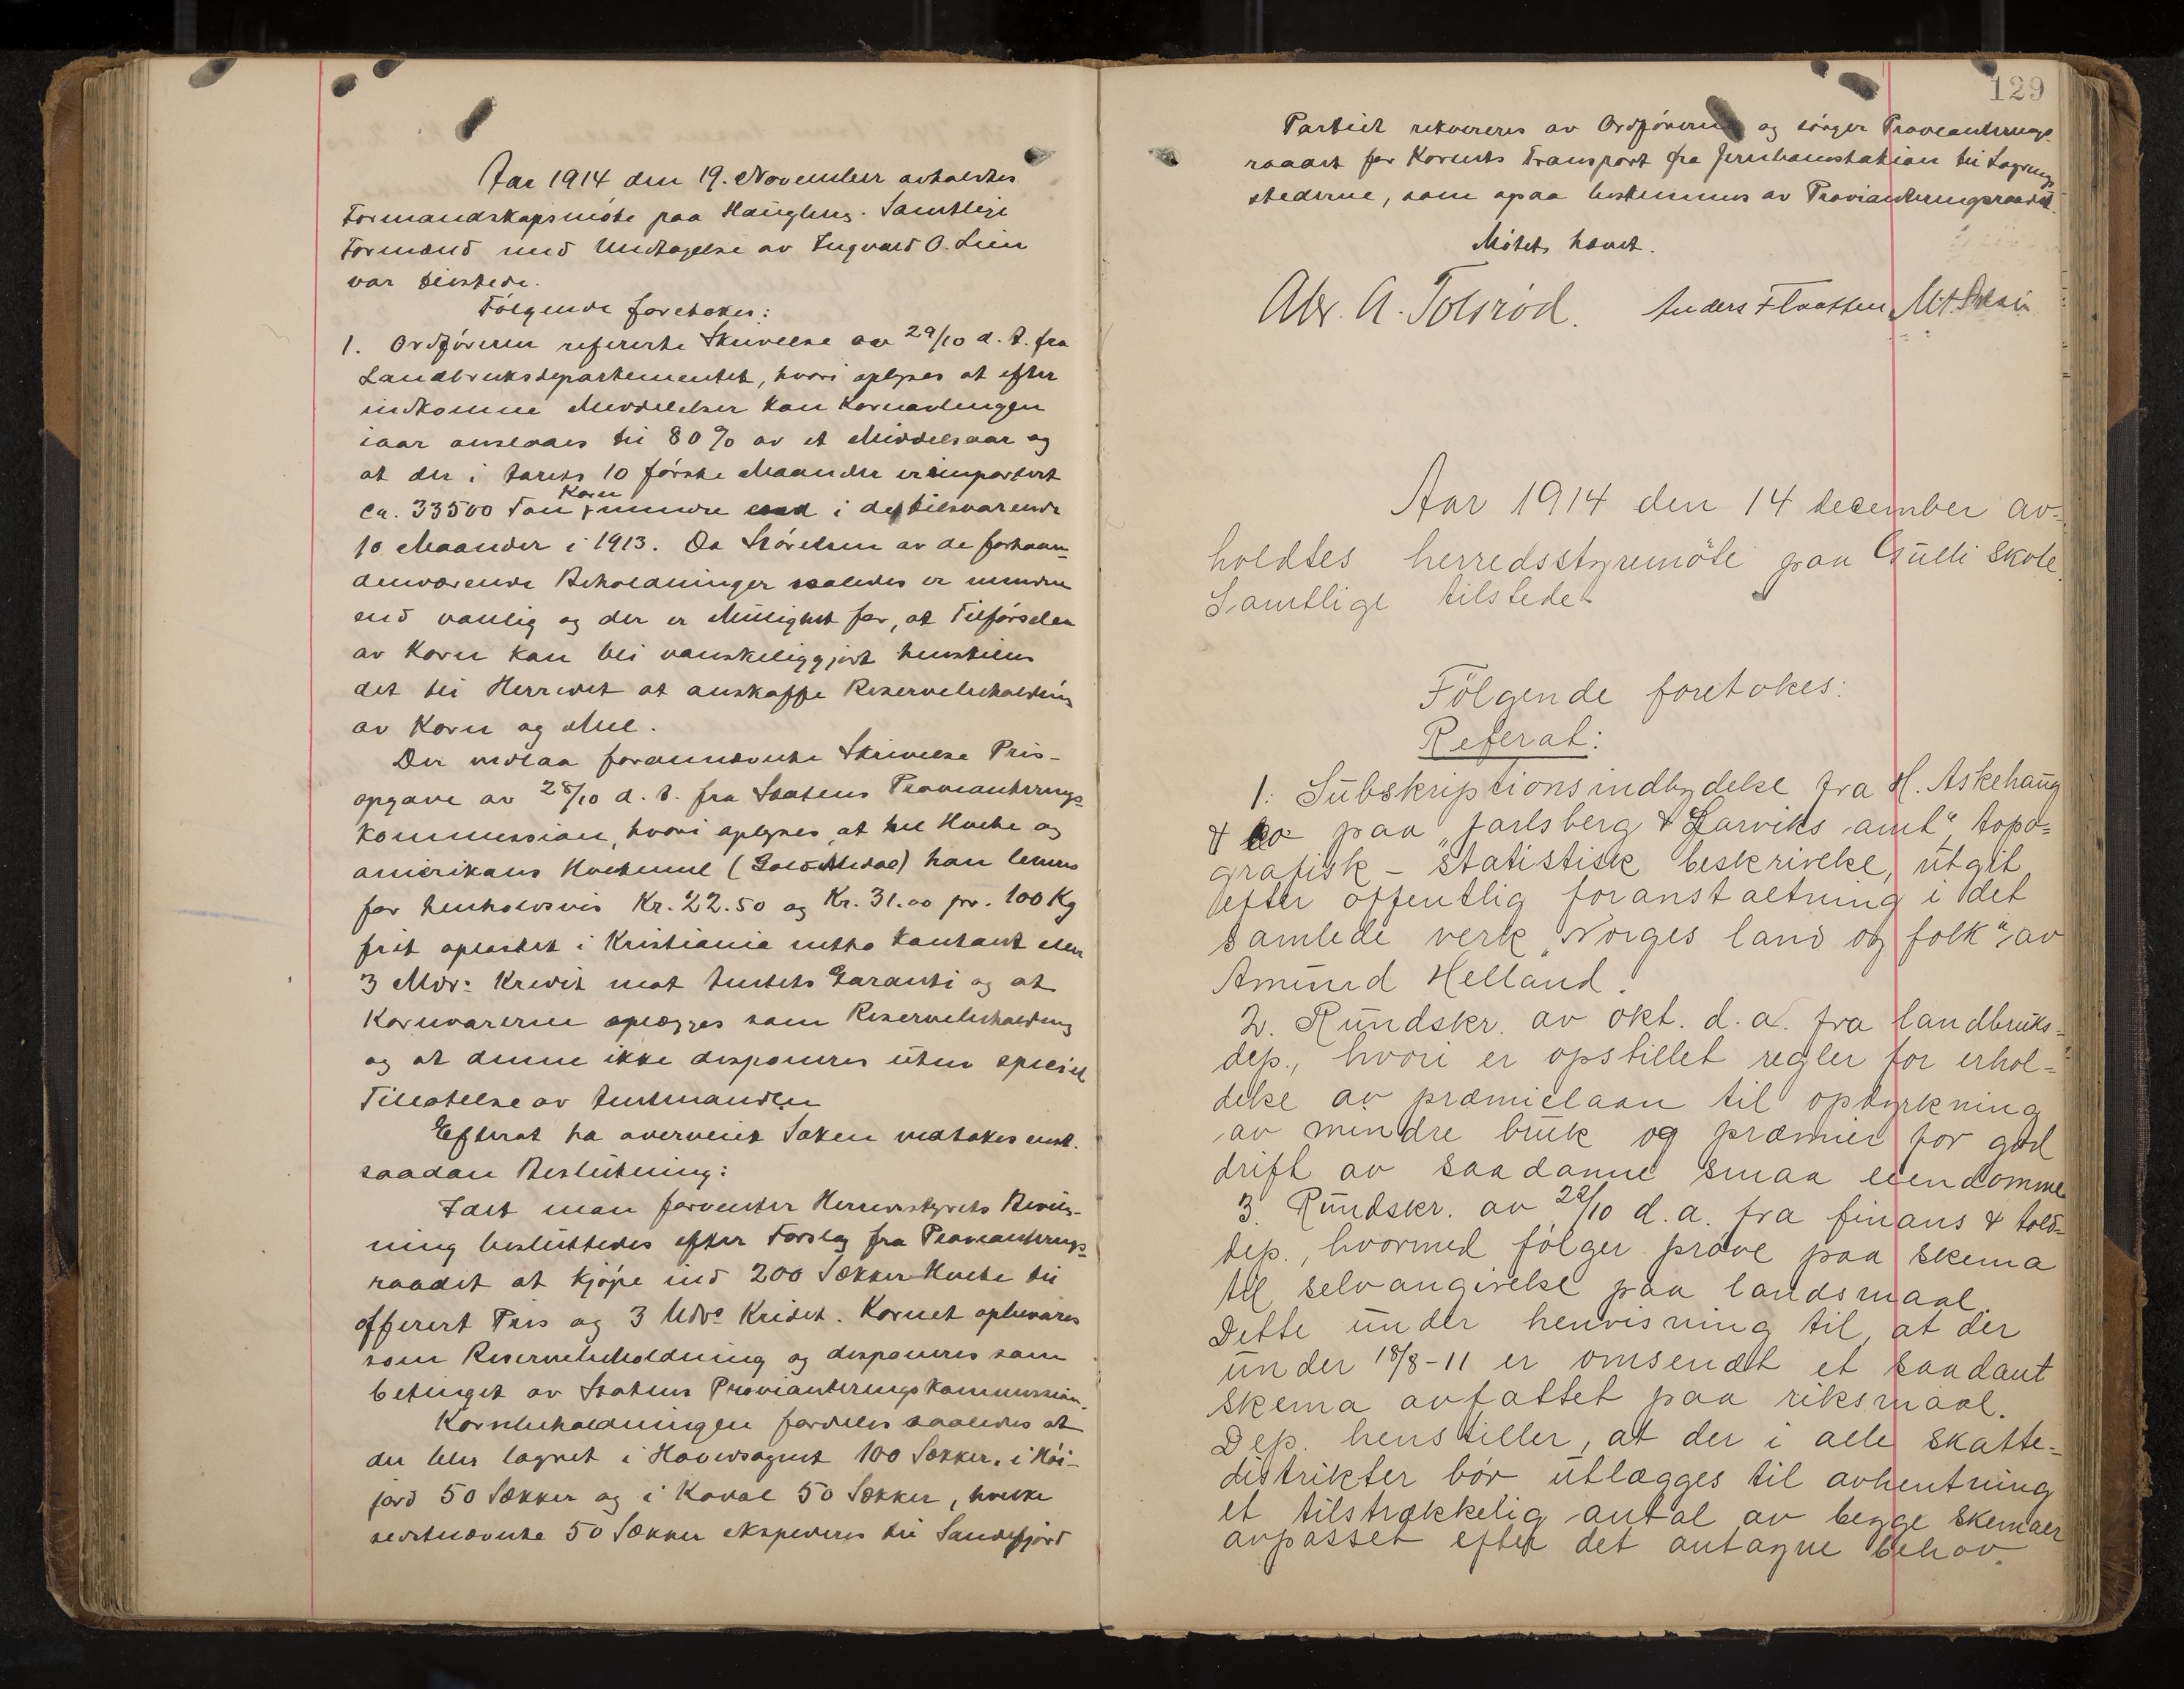 Aar 1914 den 19. November avholdtes
Formandskapsmøte paa Haugberg. Samtlige
Formænd med Undtagelse av Ingvald O. Lien
var tilstede.
Følgende foretokes:
1. Ordføreren refererte Skrivelse av 29/10 d. A. fra
Landbruksdepartementet, hvori oplyses at efter
indkomne Meddelelser kan Kornavlingen
iaar ansla​aes til 80% av et Middelsaar og
at der i Aarets 10 første Maaneder er importert
ca. 33500 Ton Korn mindre end i de tilsvarende
10 Maaneder i 1913. Da Størelsen av de forhaan-
denværende Beholdninger saaledes er mindre
end vanlig og der er Mulighet for, at Tilførselen
av Korn kan bli vanskeliggjort henstilles
det til Herredet at anskaffe Reservebeholdning
av Korn og Mel.
Der vedlaa forannævnte Skrivelse Pris-
opgave av 28/10 d. A. fra Statens Provianterings-
kommission, hvori oplyses, at hel Hvete og
amerikans Hvetemel (Gold Medal) kan leveres
for henholdsvis Kr. 22.50 og Kr. 31.00 pr. 100 Kg
frit oplastet i Kristiania netto kontant eller
3 Mdr. Kredit mot Amtets Garanti og at
Kornvarerne oplægges som Reservebeholdning
og at denne ikke disponeres uten speciel
Tillatelse av Amtmanden
Efterat ha overveiet Saken vedtokes enst.
saadan Beslutning:
Idet man forventer Herredsstyrets Bevilg-
ning besluttedes efter Forslag fra Provianterings-
raadet at kjøpe ind 200 Sækker Hvete til
offerert Pris og 3 Mdrs Kredit. Kornet opbevares
som Reservebeholdning og disponeres som
betinget av Statens Provianteringskommission.
Kornbeholdningen fordeles saaledes at
der blir lagret i Hovedsognet 100 Sækker, i Høi-
jord 50 Sækker og i Kodal 50 Sækker, hvilke
sidstnævnte 50 Sækker ekspederes til Sandefjord
129
Partiet rekvireres av Ordføreren og sørger Provianterings-
raadet for Kornets Transport fra Jernbanestation til Lagrings
stederne, som ogsaa bestemmes av Provianteringsraadet.
Møtet hævet.
Abr. A. Tolsrød. Anders Flaatten
Aar 1914 den 14 december av-
holdtes herredsstyremöte paa Gulli skole.
Samtlige tilstede.
Fölgende foretokes:
Referat:
1. Subskriptionsindbydelse fra H. Askehaug
& co paa "Jarlsberg & Larviks amt", topo-
grafisk - statistisk beskrivelse, utgit
efter offentlig foranstaltning i det
samlede verk "Norges land og folk" av
Amund Helland.
2. Rundskr. av okt. d. a. fra landbruks-
dep., hvori er opstillet regler for erhol-
delse av præmielaan til opdyrkning
av mindre bruk og præmier for god
drift av saadanne smaa eiendomme
3. Rundskr. av 22/10 d. a. fra finans & told-
dep., hvormed fölger pröve paa skema
til selvangivelse paa landsmaal.
Dette under henvisning til, at der
under 18/8-11 er omsendt et saadant
skema avfattet paa riksmaal.
Dep. henstiller, at der i alle skatte-
distrikter bör utlægges til avhentning
et tilstrækkelig antal av begge skemaer
avpasset efter det antagne behov.